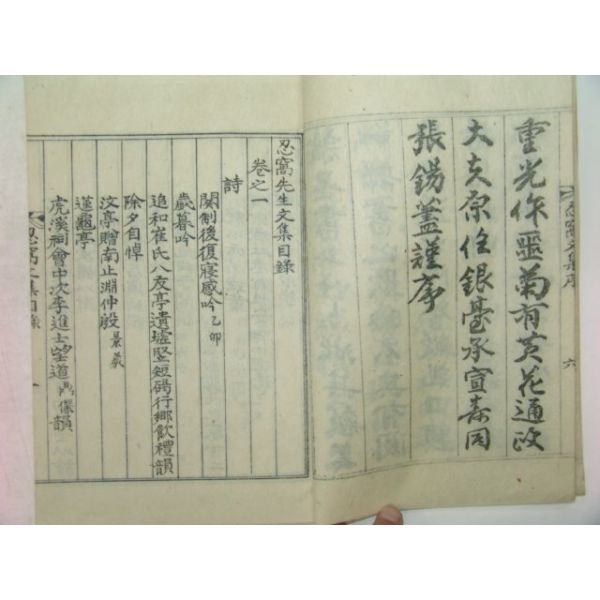 重光作噩菊有黃花通政
大夫原任銀臺承宣壽同
張錫蓋謹序
忍窩文集序
六
忍窩先生文集目錄
卷之一
詩
闋制後復寢感吟 乙卯
歲暮吟
追和崔氏八友亭遺墟竪短碣行鄉飮禮韻
除夕自悼
汶亭贈南止淵仲殷 景羲
蓮龜亭
虎溪祠會中次李進士望道
韻
忍窩文集目錄
一